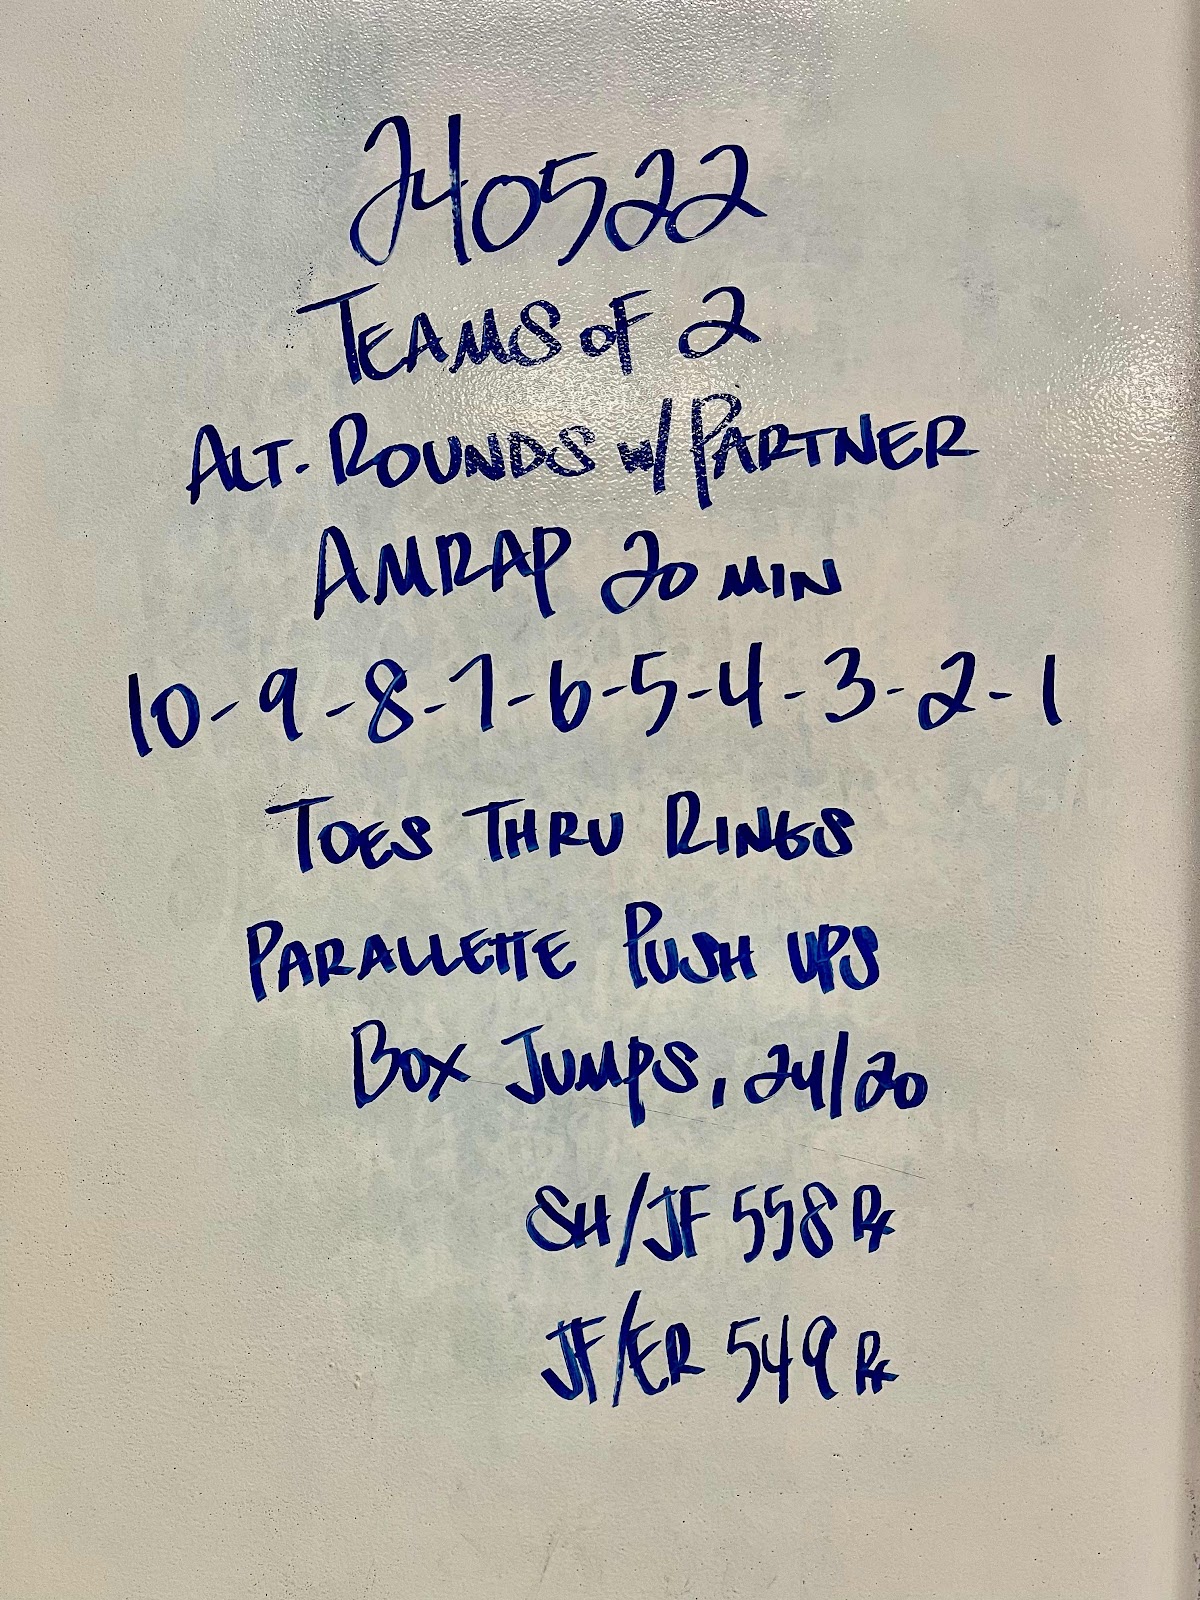 240522
TEAMS OF 2
ALT. ROUNDS w/ PARTNER
AMRAP 20 MIN
10-9-8-7-6-5-4-3-2-1
TOES THRU RINGS
PARALLETTE PUSH UPS
BOX JUMPS, 24/20
SH/JF 558 Rx
JF/ER 549 Rx